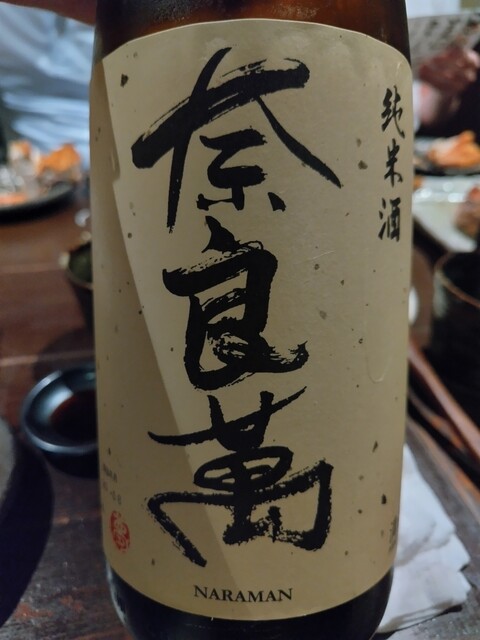 純米酒
奈良萬
NARAMAN